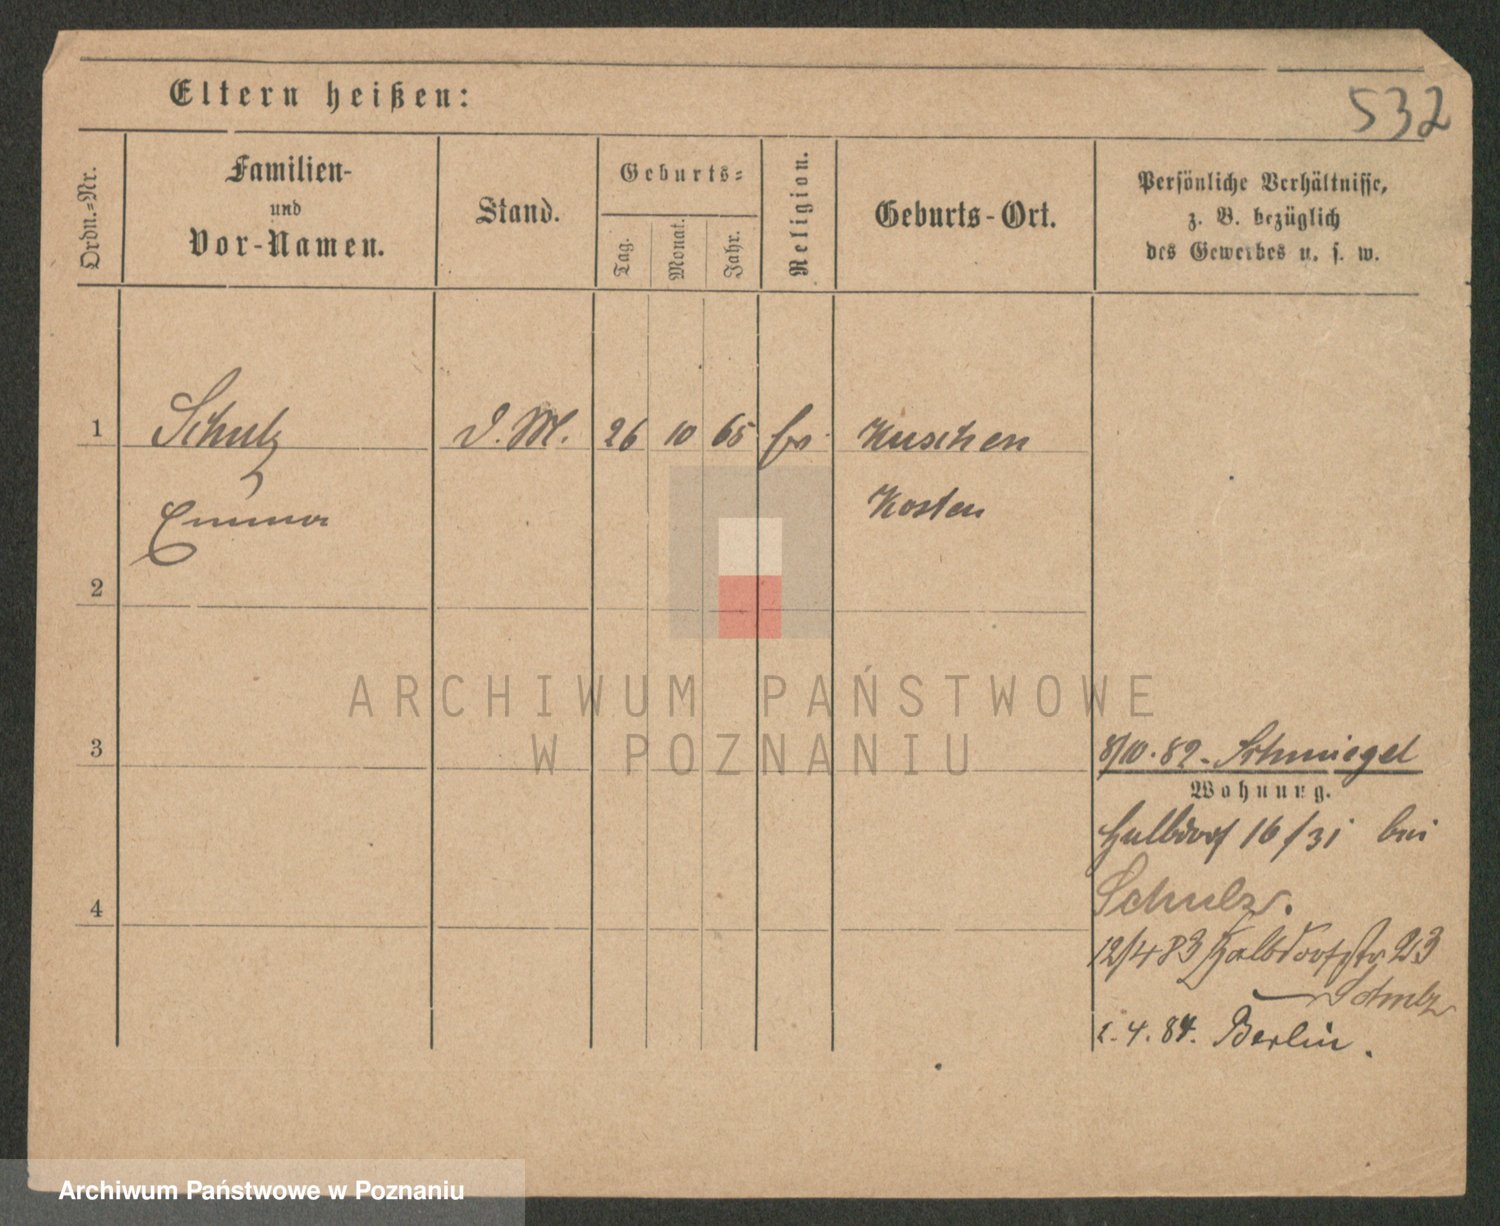 532
Eltern heißen:
Ordn.=Nr.
Familien-
und
Vor-Namen.
Stand.
Geburts=
Tag.
Monat.
Jahr.
Religion.
Geburts-Ort.
Persönliche Verhältnisse,
z. B. bezüglich
des Gewerbes u. s. w.
1 Schulz D. M. 26 10 65 Kuschen
Emma Kosten
2
3
8/10. 82. Schmiegel
Wohnung.
Halbdorf 16/31 bei
4
Schulz.
12/4 83 Halbdorfstr 23
Schulz
2. 4. 84. Berlin.
ARCHIWUM PAŃSTWOWE
W POZNANIU
Archiwum Państwowe w Poznaniu